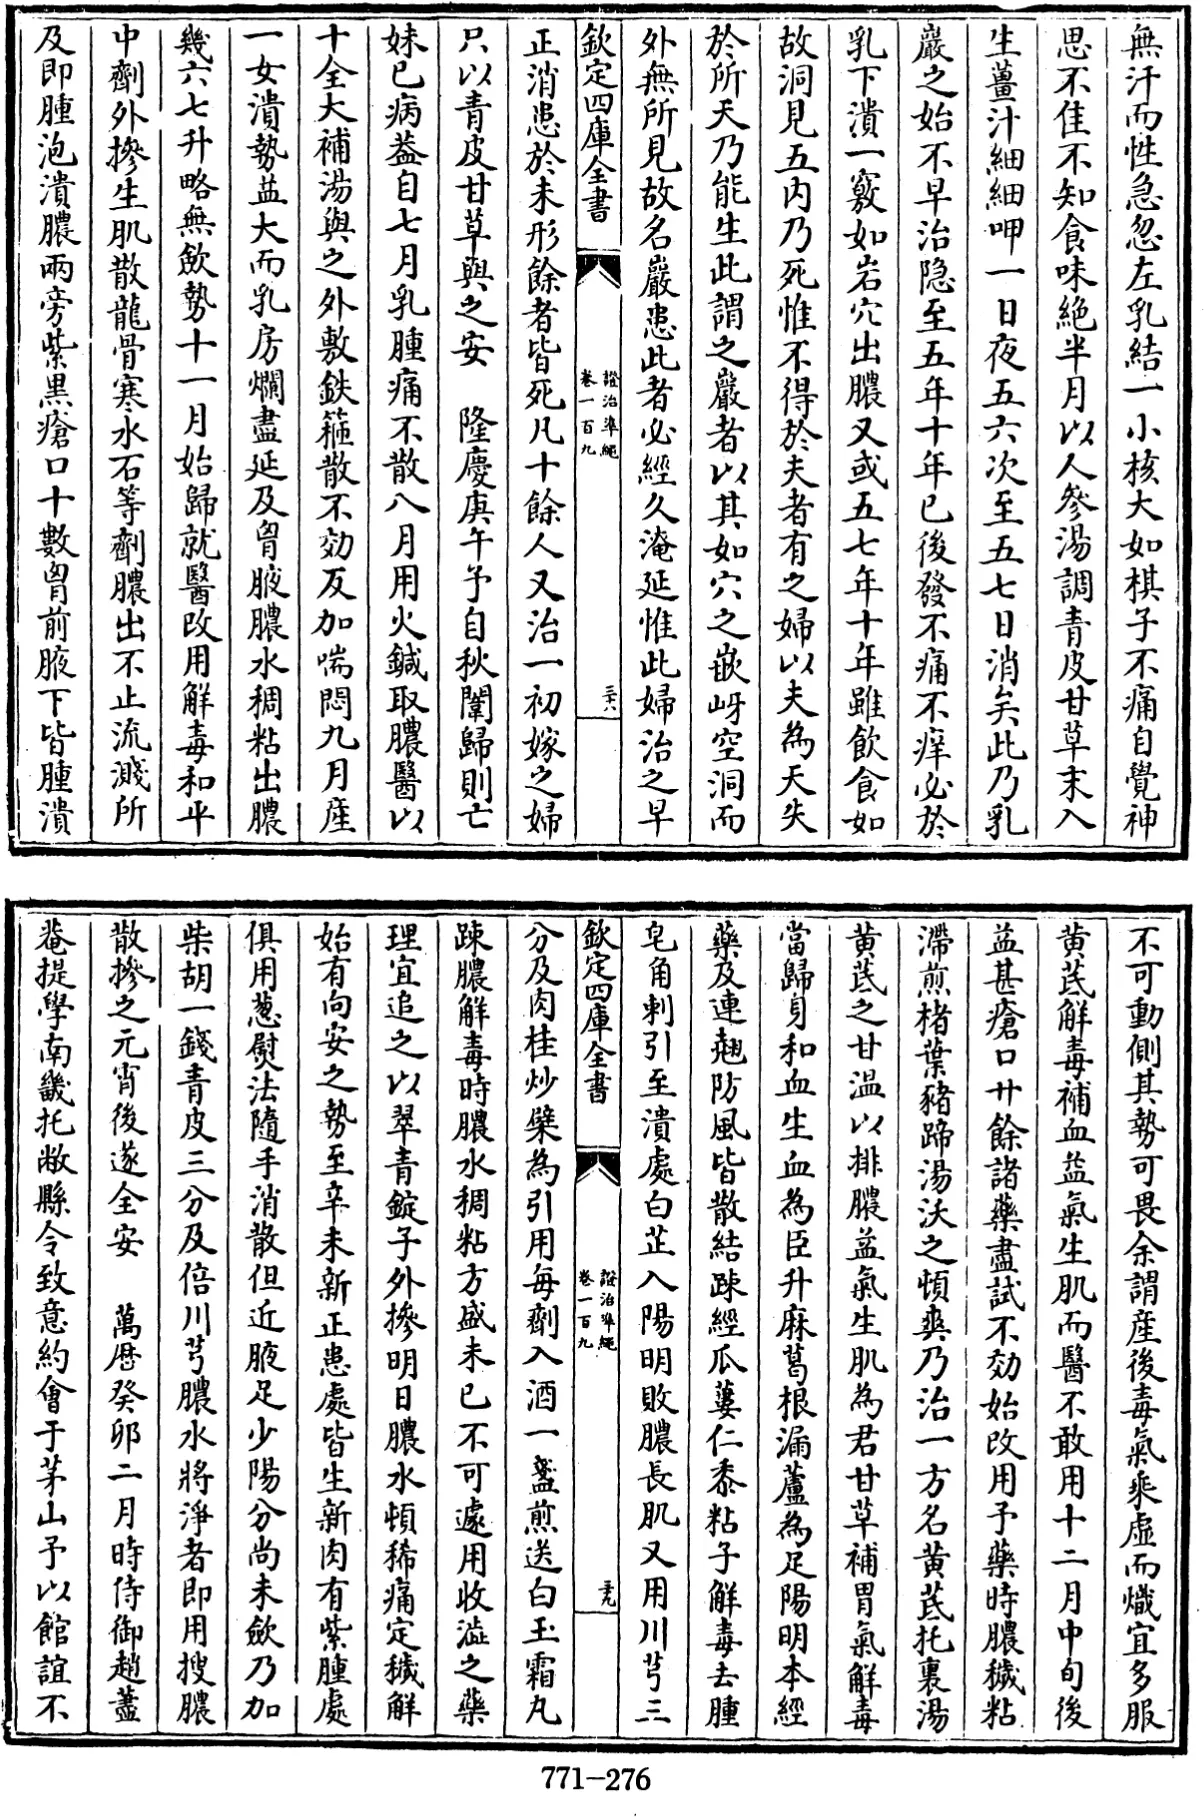 無汗而性急忽左乳結一小核大如棋子不痛自覺神
思不佳不知食味絶半月以人參湯調青皮甘草末入
生薑汁細細呷一日夜五六次至五七日消矣此乃乳
巖之始不早治隐至五年十年已後發不痛不痒必於
乳下潰一竅如岩穴出膿又或五七年十年雖飲食如
故洞見五内乃死惟不得於夫者有之婦以夫為天失
於所天乃能生此謂之巖者以其如穴之嵌岈空洞而
外無所見故名巖患此者必經久淹延惟此婦治之早
欽定四庫全書
證治準繩
卷一百九
三十六
正消患於未形餘者皆死凡十餘人又治一初嫁之婦
只以青皮甘草與之安　隆慶庚午予自秋闈歸則亡
妹已病葢自七月乳腫痛不散八月用火鍼取膿醫以
十全大補湯與之外敷鉄箍散不効反加喘悶九月産
一女潰勢益大而乳房爛盡延及胷腋膿水稠粘出膿
幾六七升略無斂勢十一月始歸就醫改用解毒和平
中劑外摻生肌散龍骨寒水石等劑膿出不止流濺所
及即腫泡潰膿兩旁紫黒瘡口十數胷前腋下皆腫潰
不可動側其勢可畏余謂産後毒氣乘虛而熾宜多服
黄芪解毒補血益氣生肌而醫不敢用十二月中旬後
益甚瘡口廾餘諸藥盡試不効始改用予藥時膿穢粘
滯煎楮葉豬蹄湯沃之頓爽乃治一方名黄芪托裏湯
黄芪之甘温以排膿益氣生肌為君甘草補胃氣解毒
當歸身和血生血為臣升麻葛根漏蘆為足陽明本經
藥及連翹防風皆散結疎經瓜蔞仁黍粘子解毒去腫
皂角刺引至潰處白芷入陽明敗膿長肌又用川芎三
欽定四庫全書
證治準繩
卷一百九
三十九
分及肉桂炒蘗為引用毎劑入酒一盞煎送白玉霜丸
疎膿解毒時膿水稠粘方盛未已不可遽用收澁之藥
理宜追之以翠青錠子外摻明日膿水頓稀痛定穢解
始有向安之勢至辛未新正患處皆生新肉有紫腫處
俱用葱熨法隨手消散但近腋足少陽分尚未斂乃加
柴胡一錢青皮三分及倍川芎膿水將淨者即用搜膿
散摻之元宵後遂全安　萬厯癸卯二月時侍御趙藎
菴提學南畿托敝縣令致意約會于茅山予以館誼不
771-276